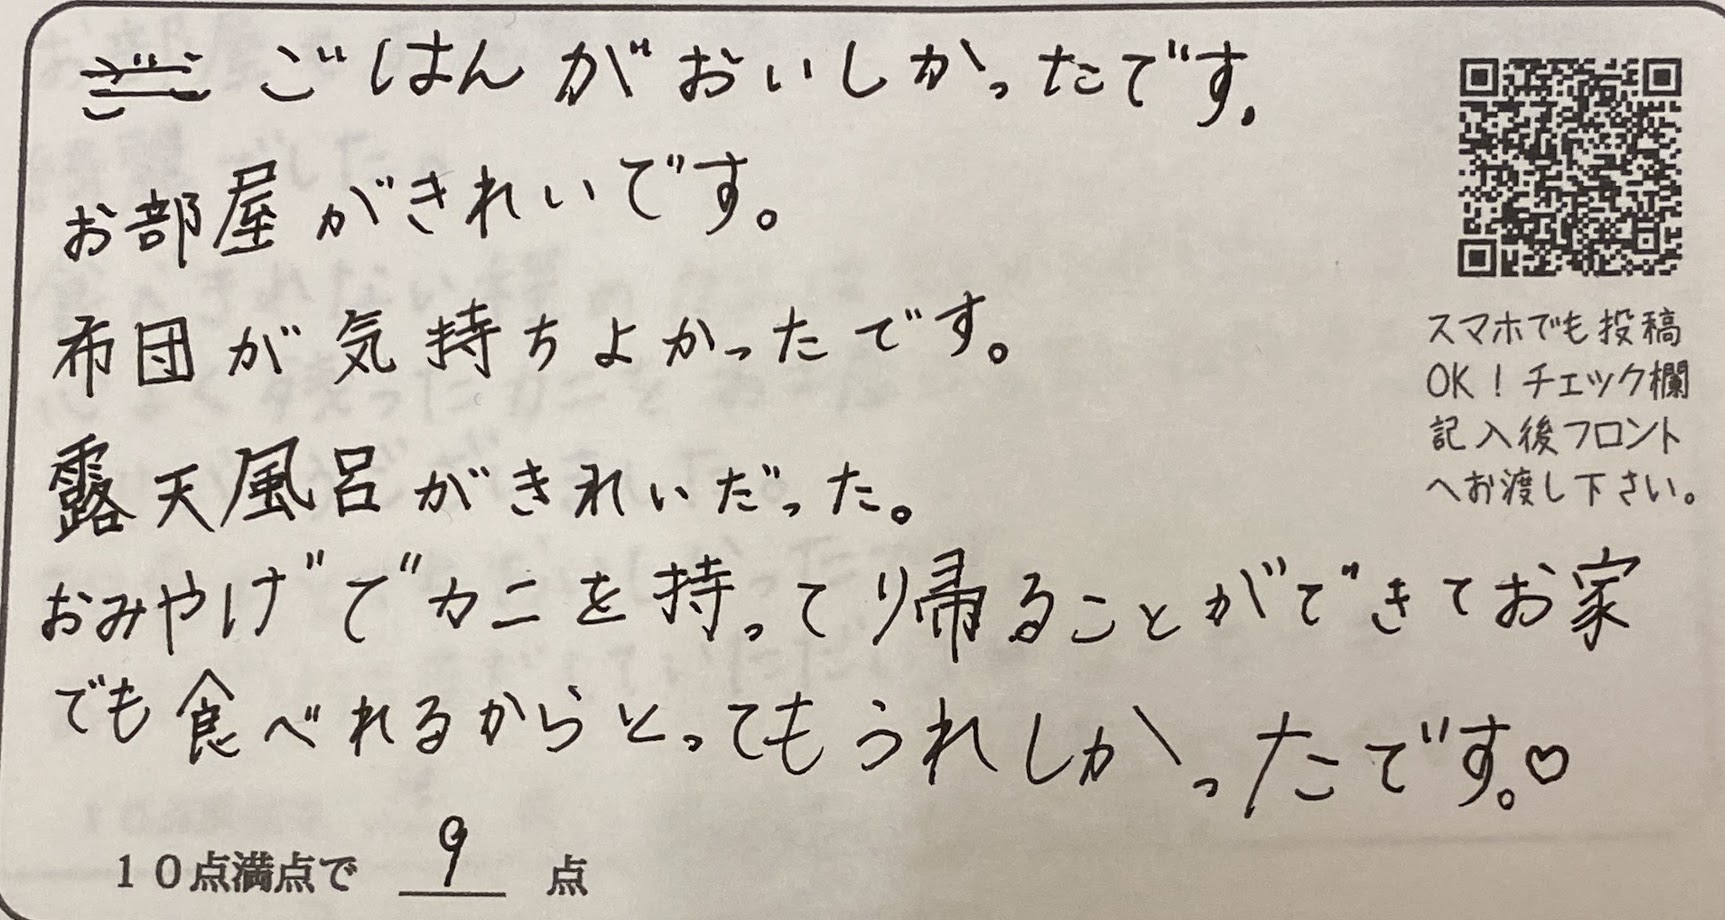 ごはんがおいしかったです.
お部屋がきれいです。
布団が気持ちよかったです。
露天風呂がきれいだった。
おみやげでカニを持って帰ることができてお家
でも食べれるからとってもうれしかったです。♡
スマホでも投稿
OK！チェック欄
記入後フロント
へお渡し下さい。
10点満点で 9 点